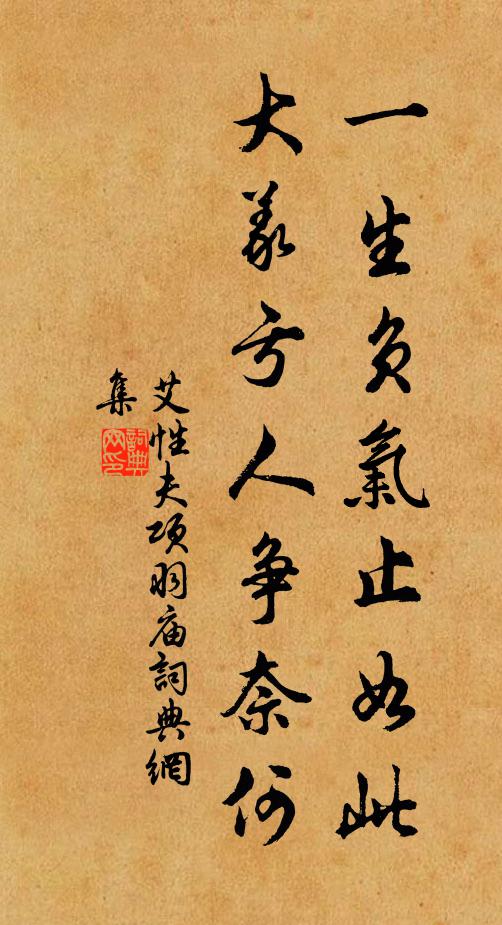 一生负氣止如此
大義亏人争奈何
艾性夫项羽庙詞典網
集
詞典網印